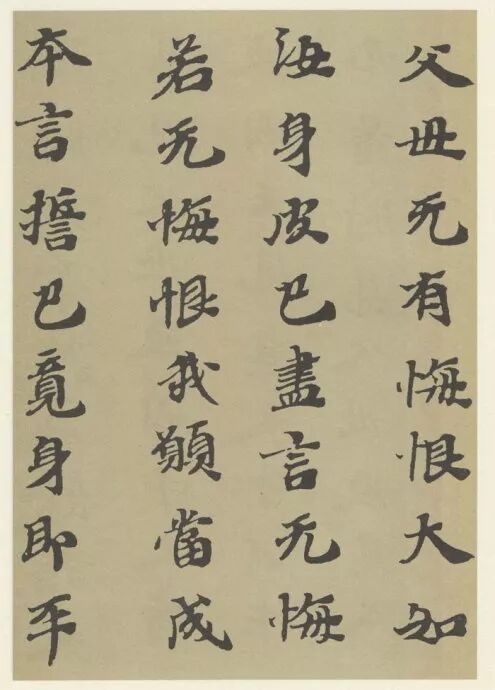 父母无有悔恨大如
海身皮已盡言无悔
若无悔恨我願當成
本言誓已竟身即平